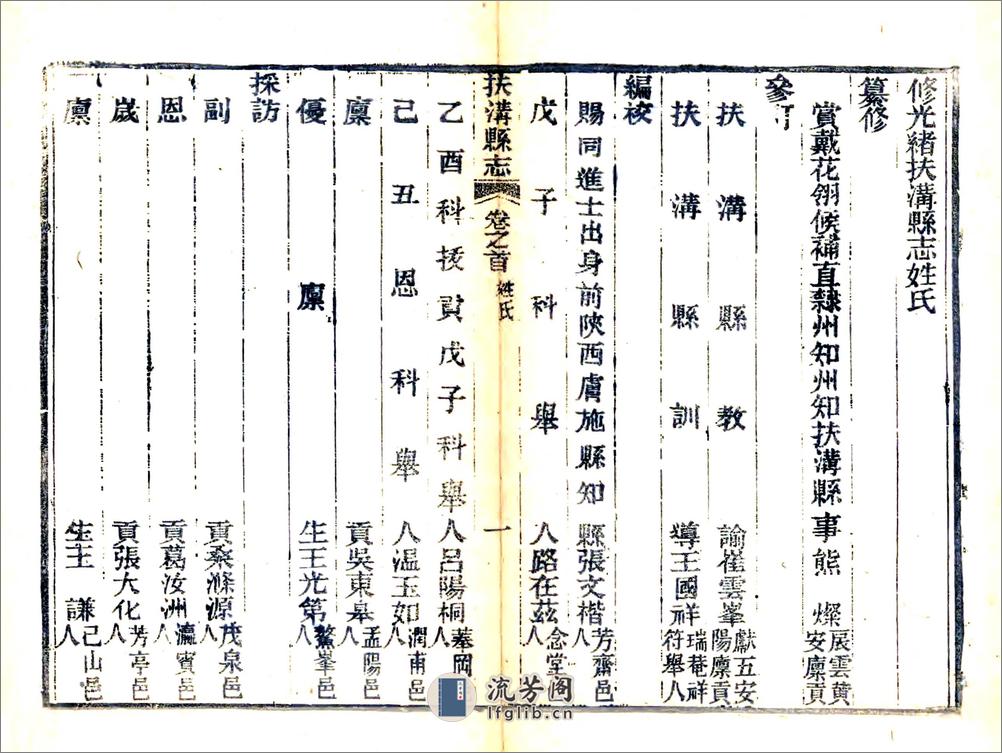 修光緒扶溝縣志姓氏
纂修
賞戴花翎候補直隸州知州知扶溝縣事熊燦展雲黃安廩貢
參訂
扶溝縣教諭崔雲峯獻五安陽廩貢
扶溝縣訓導王國祥瑞菴祥符舉人
編校
賜同進士出身前陝西膚施縣知縣張文楷芳齋邑人
戊子科舉人路在茲念堂邑人
扶溝縣志 卷之首 姓氏 一
乙酉科拔貢戊子科舉人呂陽桐岡人
己丑恩科舉人温玉如潤甫邑人
廩貢吳東皋孟陽邑人
優廩生王光第鰲峯邑人
採訪
副貢桑滌源茂泉邑人
恩貢葛汝洲瀛賓邑人
歲貢張大化芳亭邑人
廩生王謙己山邑人
流芳阁
lfglib.cn